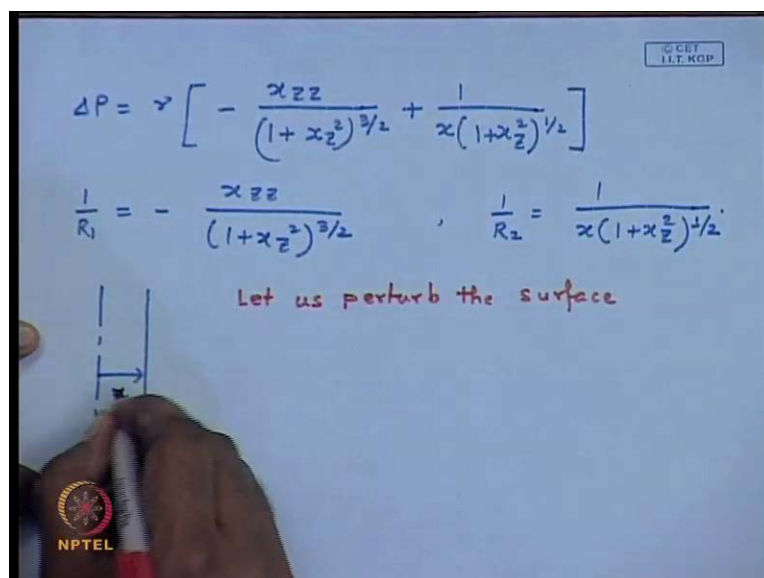 © CET
I.I.T. KGP
ΔP = γ [ - xzz / (1 + xz²)^3/2 + 1 / x(1+xz²)^1/2 ]
1/R₁ = - xzz / (1+xz²)^3/2 , 1/R₂ = 1 / x(1+xz²)^1/2.
Let us perturb the surface
NPTEL